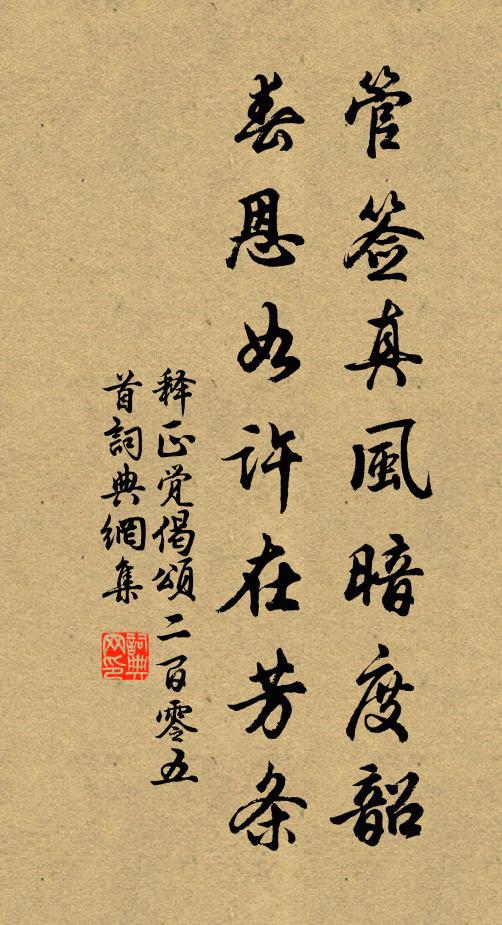 管签真風暗度韶
春恩如许在芳条
释正觉偈頌二百零五
首詞典網集
詞典
网印